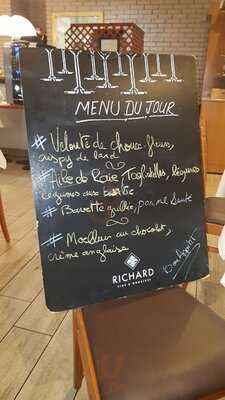 MENU DU JOUR
# Velouté de choux fleurs,
crispy de lard
# Aile de Raie, Tagliatelles, légumes
légumes aux basilic
# Bavette grillée, pomme Sauté
# Moelleux au chocolat,
crème anglaise
Bon Appétit
RICHARD
VINS & DOMAINES